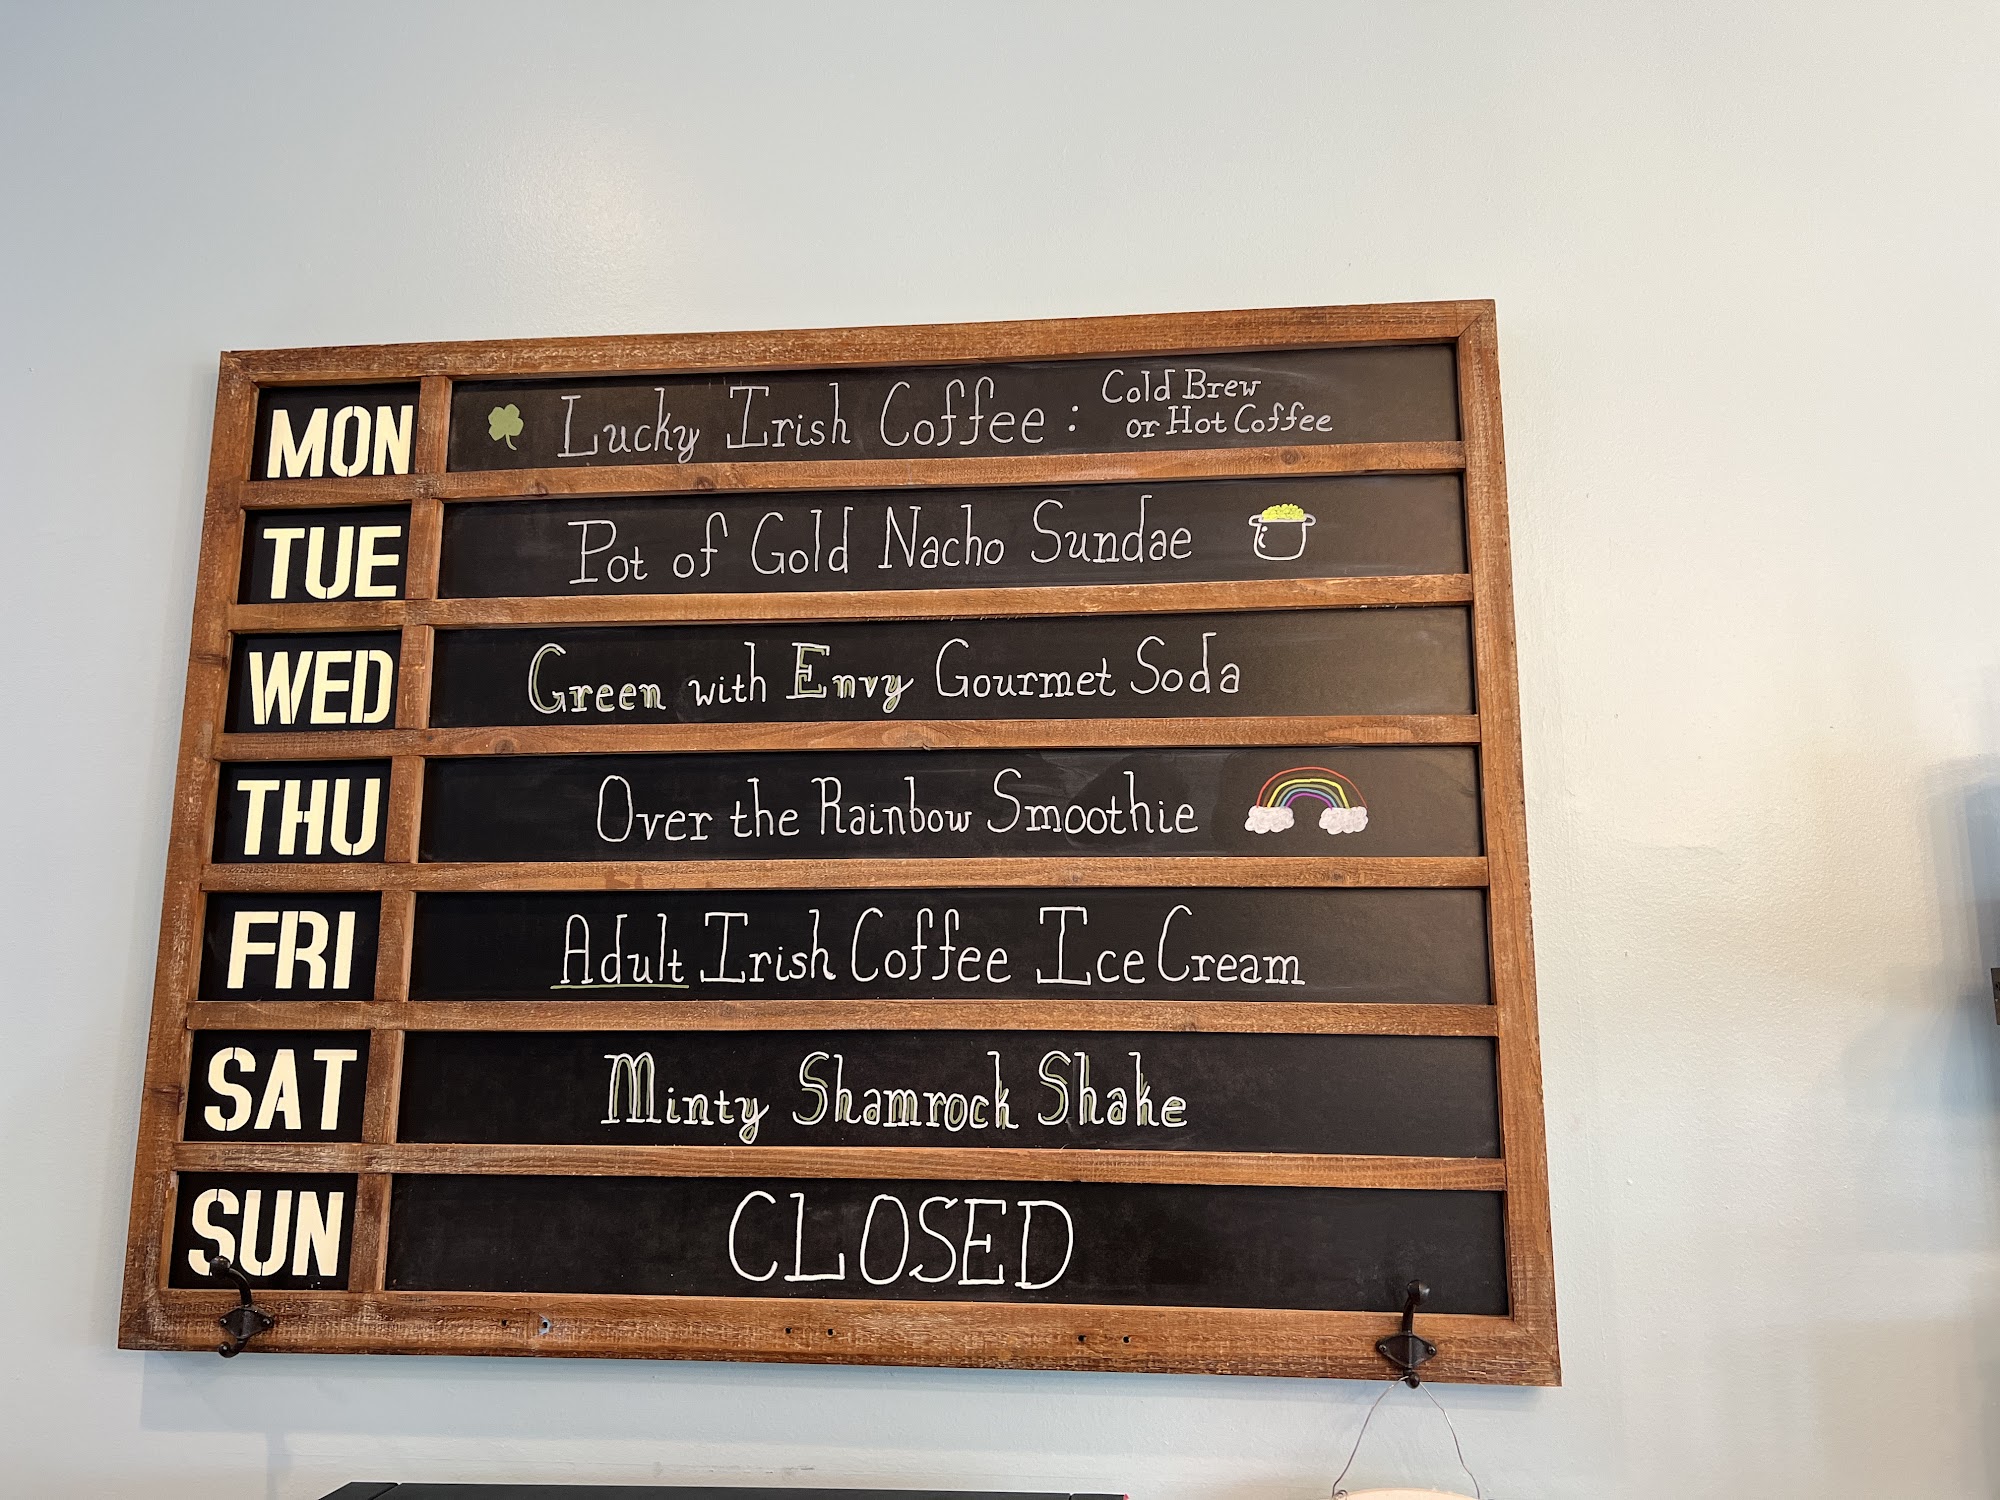 MON Lucky Irish Coffee: Cold Brew
or Hot Coffee
TUE Pot of Gold Nacho Sundae
WED Green with Envy Gourmet Soda
THU Over the Rainbow Smoothie
FRI Adult Irish Coffee Ice Cream
SAT Minty Shamrock Shake
SUN CLOSED